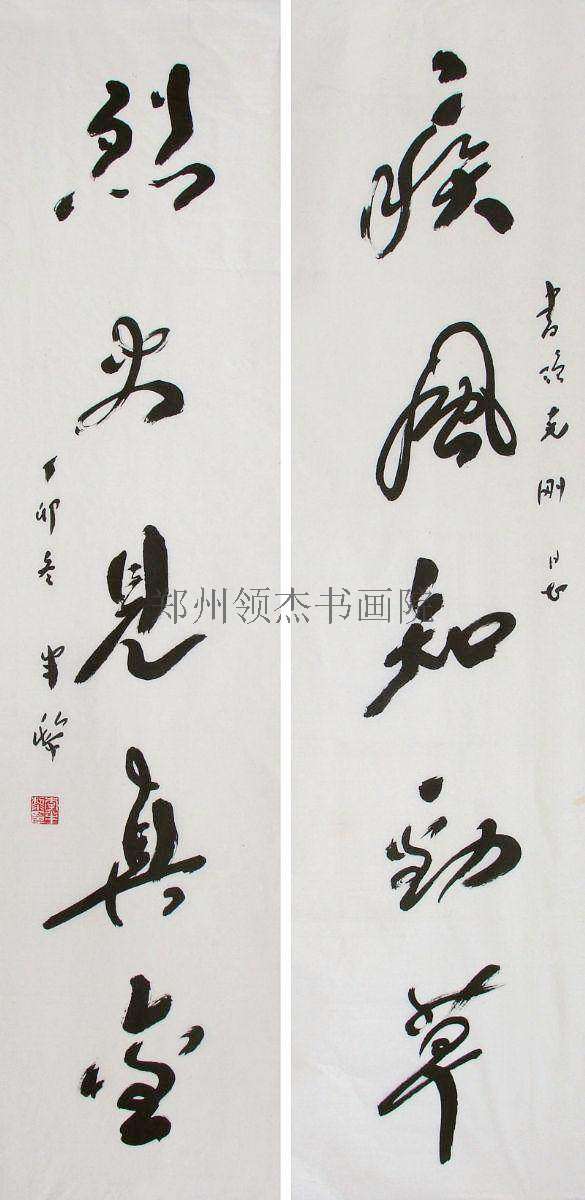 疾風知勁草
書贈克剛同志
烈火見真金
丁卯冬
郑州领杰书画院